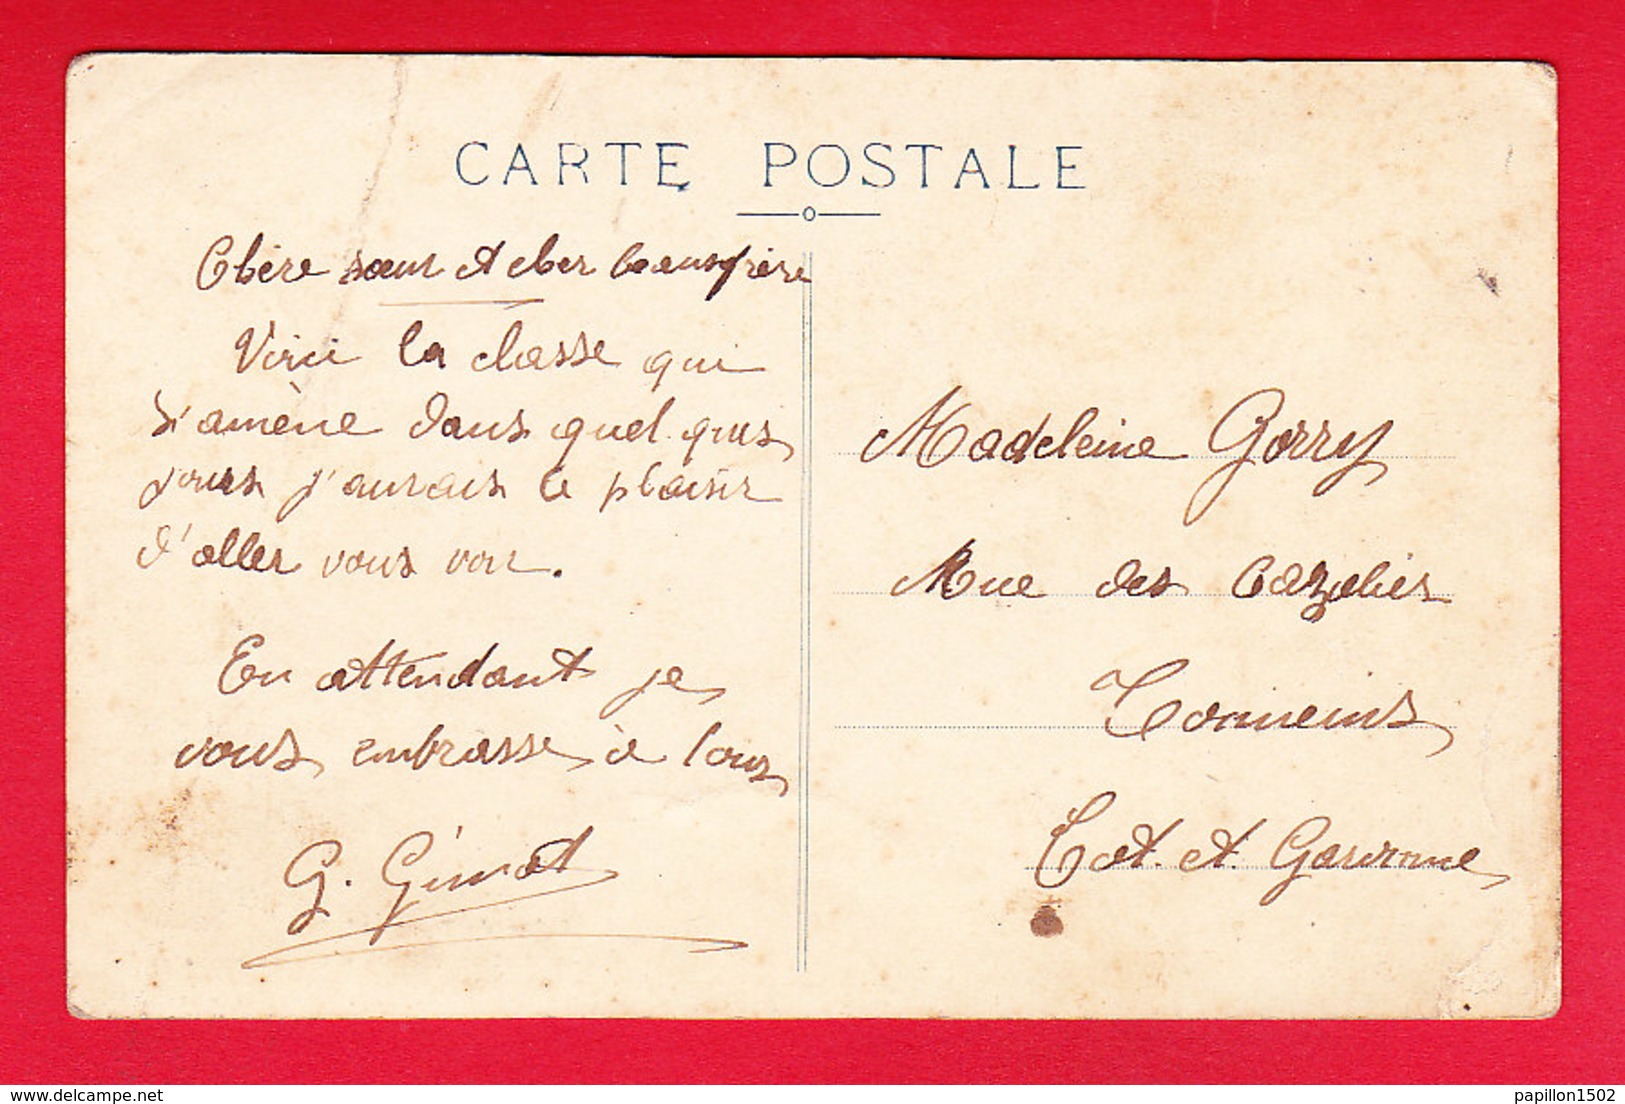 CARTE POSTALE
Chère sœur et cher beaufrère
Voici la classe qui
s'amène dans quel-ques
jours j'aurais le plaisir
d'aller vous voir.
En attendant je
vous embrasse à tous
G. Ginot
Madeleine Gorry
Rue des Cazelier
Tonneins
Lot et Garonne
papillon1502
www.delcampe.net